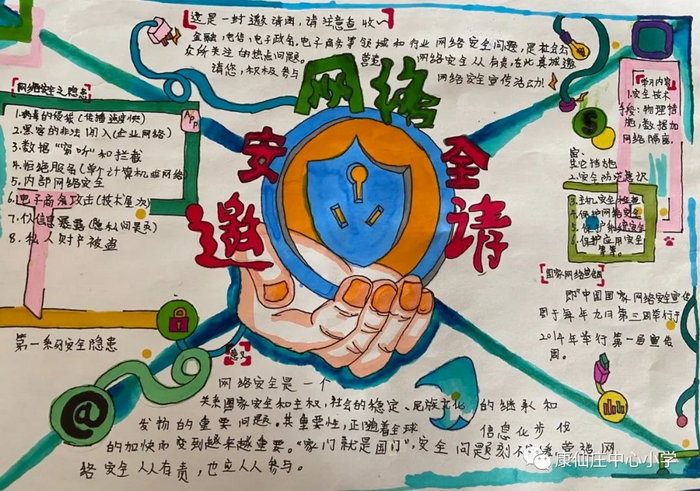 这是一封邀请函,请注意查收~
金融、电信、电子政务、电子商务等领域和行业网络安全问题,是社会公
众所关注的热点问题。营造 网络安全人人有责,在此真诚邀
请您,积极参与 网络安全宣传活动!
网络
安全
邀请
网络安全之隐患
1.病毒的侵袭(传播速度快)
2.黑客的非法闯入(企业网络)
3.数据"窃听"和拦截
4.拒绝服务(单个计算机或网络)
5.内部网络安全
6.电子商务攻击(技术层次)
7.信息泄露(隐私问题)
8.私人财产被盗
App
第一系列安全隐患
学习内容
1.安全技术
手段:物理措
施,数据加
密、
网络隔离,
其它措施
2.安全防范意识
3.主机安全检查
4.保护网络安全
5.保护系统安全
6.保护应用安全
国家网络宣传周
即"中国国家网络安全宣传
周于每年九月第三周举行于
2014年举行第一届宣传
周。
意义
网络安全是一个
关系国家安全和主权,社会的稳定、民族文化的继承和
发扬的重要问题。其重要性,正随着全球信息化步伐
的加快而变到越来越重要。"家门就是国门",安全问题刻不容缓,
络安全人人有责,也应人人参与。
@
$
康仙庄中心小学